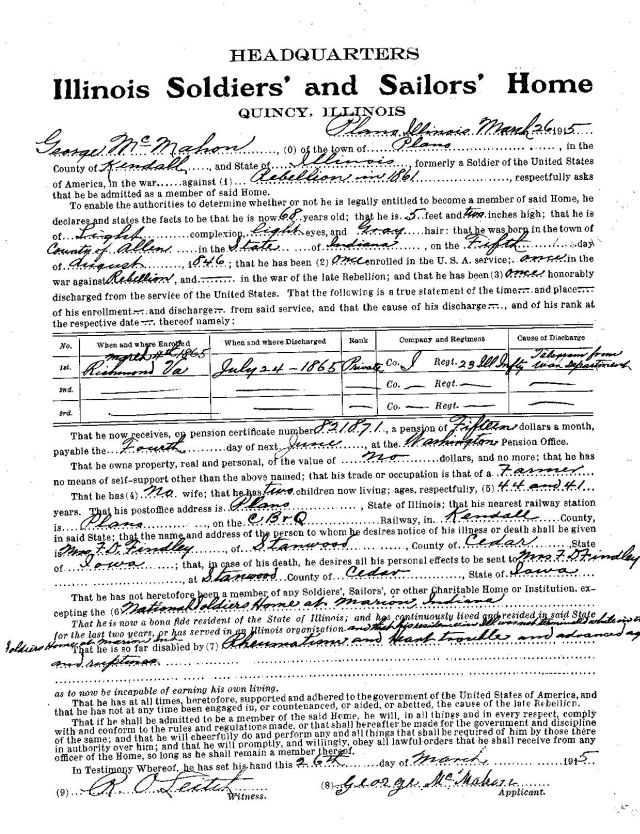 HEADQUARTERS
Illinois Soldiers' and Sailors' Home
QUINCY, ILLINOIS
Plano, Illinois, March 26 1915
George McMahon, (0) of the town of Plano, in the
County of Kendall, and State of Illinois, formerly a Soldier of the United States
of America, in the war against (1) Rebellion in 1861, respectfully asks
that he be admitted as a member of said Home.
To enable the authorities to determine whether or not he is legally entitled to become a member of said Home, he
declares and states the facts to be that he is now 68 years old; that he is 5 feet and two inches high; that he is
of Light complexion, light eyes, and Gray hair: that he was born in the town of
County of Allen in the State of Indiana, on the Fifth day
of August, 1846; that he has been (2) Once enrolled in the U. S. A. service; once in the
war against Rebellion, and in the war of the late Rebellion; and that he has been (3) once honorably
discharged from the service of the United States. That the following is a true statement of the time and place
of his enrollment and discharge from said service, and that the cause of his discharge, and of his rank at
the respective date thereof namely:
No. When and where Enrolled When and where Discharged Rank Company and Regiment Cause of Discharge
1st. March 4th 1865 Richmond Va July 24 - 1865 Private Co. I Regt. 23 Ill Infty Telegram from War department
2nd. Co. Regt.
3rd. Co. Regt.
That he now receives, on pension certificate number 821871, a pension of Fifteen dollars a month,
payable the Fourth day of next June, at the Washington Pension Office.
That he owns property, real and personal, of the value of no dollars, and no more; that he has
no means of self-support other than the above named; that his trade or occupation is that of a Farmer
That he has (4) No wife; that he has two children now living; ages, respectively, (5) 44 and 41
years. That his postoffice address is Plano, State of Illinois; that his nearest railway station
is Plano, on the C B & Q Railway, in Kendall County,
in said State; that the name and address of the person to whom he desires notice of his illness or death shall be given
is Mrs F. D. Findley of Stanwood, County of Cedar, State
of Iowa; that, in case of his death, he desires all his personal effects to be sent to Mrs F D Findley
, at Stanwood County of Cedar, State of Iowa
That he has not heretofore been a member of any Soldiers', Sailors', or other Charitable Home or Institution, ex-
cepting the (6) National Soldiers Home at Marion, Indiana
That he is now a bona fide resident of the State of Illinois; and has continuously lived and resided in said State
for the last two years, or has served in an Illinois organization and that his residence in Ill was not
Soldiers Home at Marion Ind
That he is so far disabled by (7) Rheumatism and Heart trouble and advanced age
and rupture
as to now be incapable of earning his own living.
That he has at all times, heretofore, supported and adhered to the government of the United States of America, and
that he has not at any time been engaged in, or countenanced, or aided, or abetted, the cause of the late Rebellion.
That if he shall be admitted to be a member of the said Home, he will, in all things and in every respect, comply
with and conform to the rules and regulations made, or that shall hereafter be made for the government and discipline
of the same; and that he will cheerfully do and perform any and all things that shall be required of him by those there
in authority over him; and that he will promptly, and willingly, obey all lawful orders that he shall receive from any
officer of the Home, so long as he shall remain a member thereof.
In Testimony Whereof, he has set his hand this 26th day of March 1915
(9) Witness. (8) George McMahon Applicant.